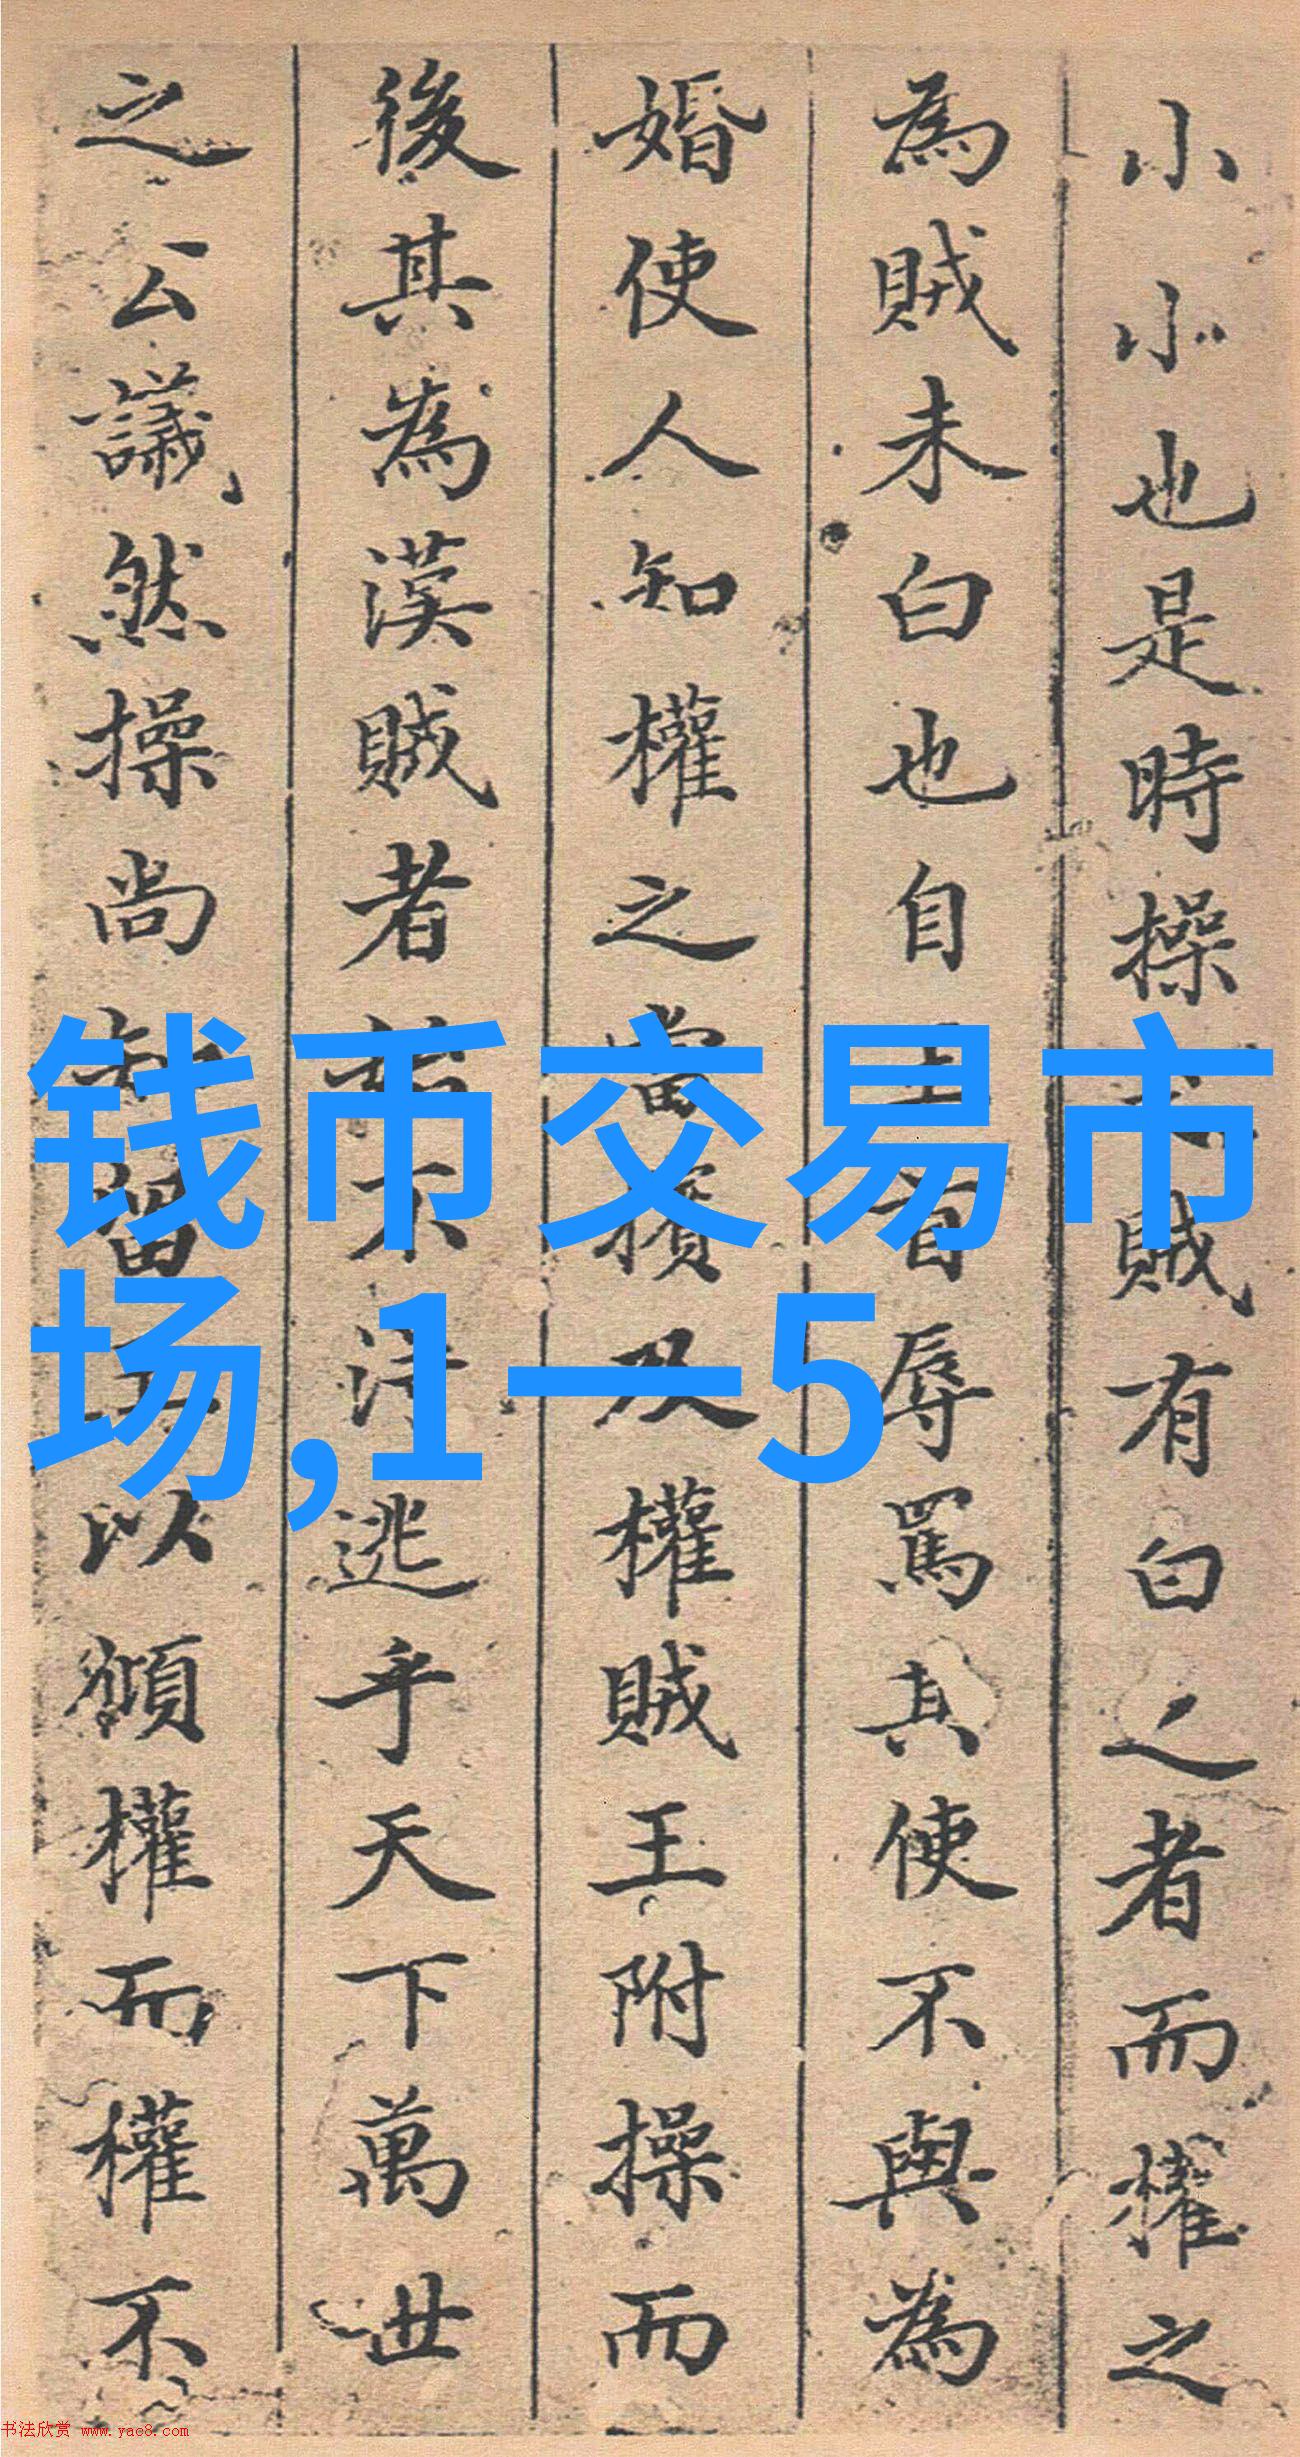 小小也是時操賊有白之者而權之
為賊未白也自首辱罵其使不與為
婚使人知權之當擯及權賊王附操而
後其為漢賊者不逃乎天下萬世
之公議然操尚留以權而權不
钱币交易市
场,1一5
书法欣赏 www.yac8.com